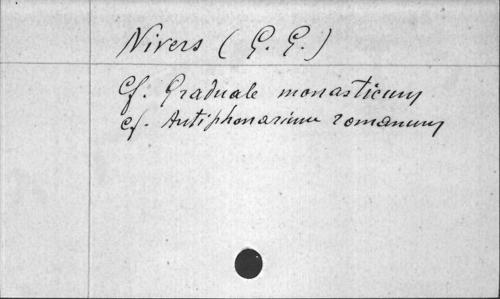 Nivers (G. G.)
Cf. Graduale monasticum
cf. Antiphonarium romanum